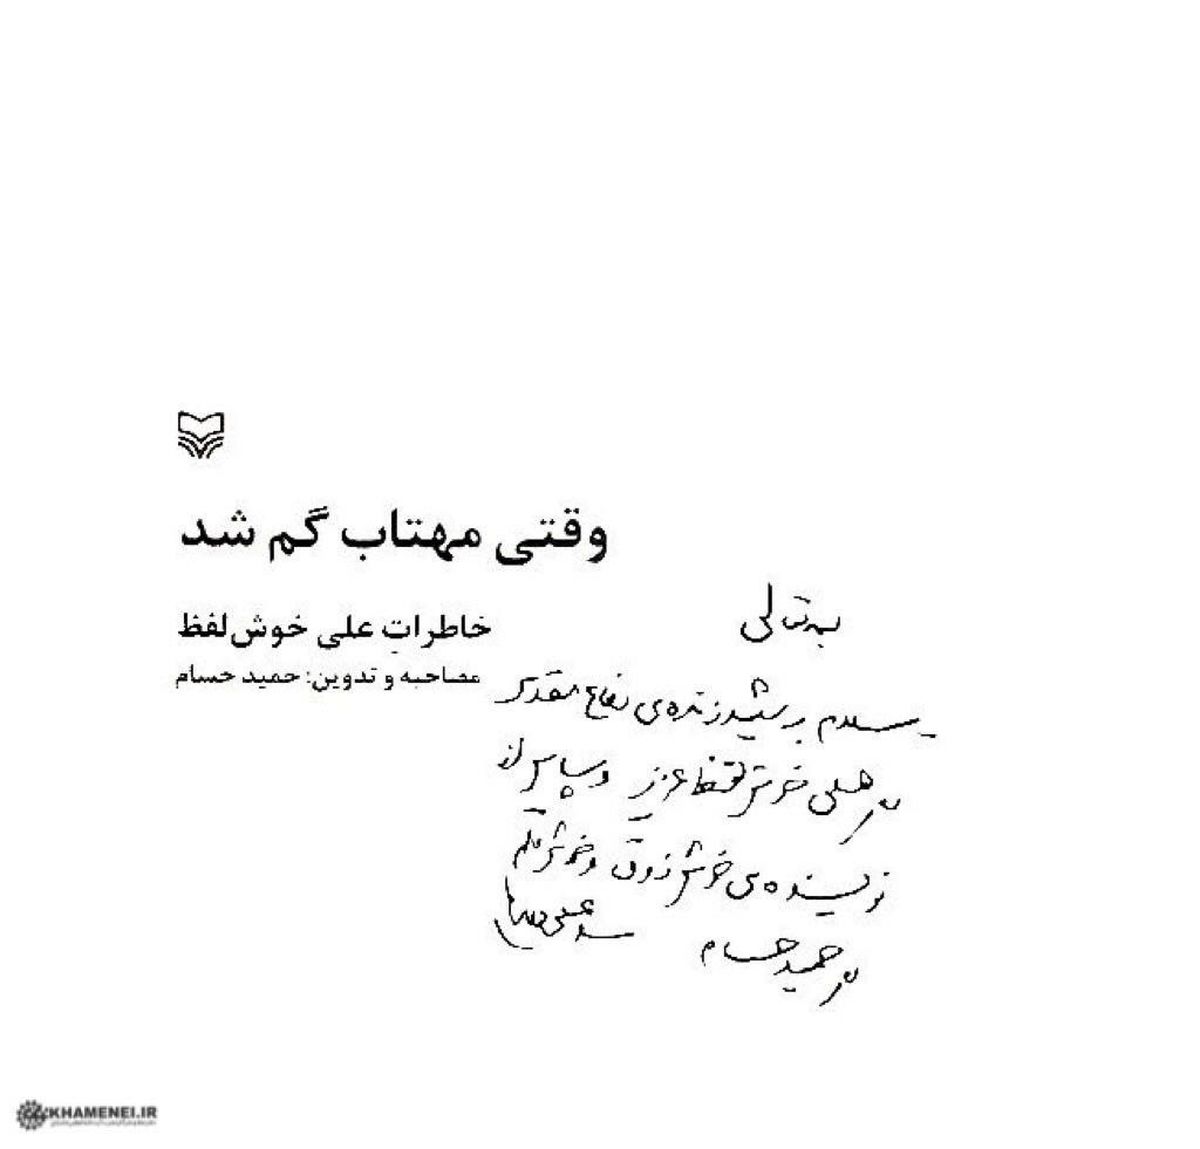 وقتی مهتاب گم شد
خاطراتِ علی خوش‌لفظ
مصاحبه و تدوین: حمید حسام
بسمه‌تعالی
سلام بر شهید زنده‌ی دفاع مقدس
علی خوش‌لفظ عزیز و سپاس از
نویسنده‌ی خوش‌ذوق و خوش‌قلم
حمید حسام
سیدعلی خامنه‌ای
KHAMENEI.IR